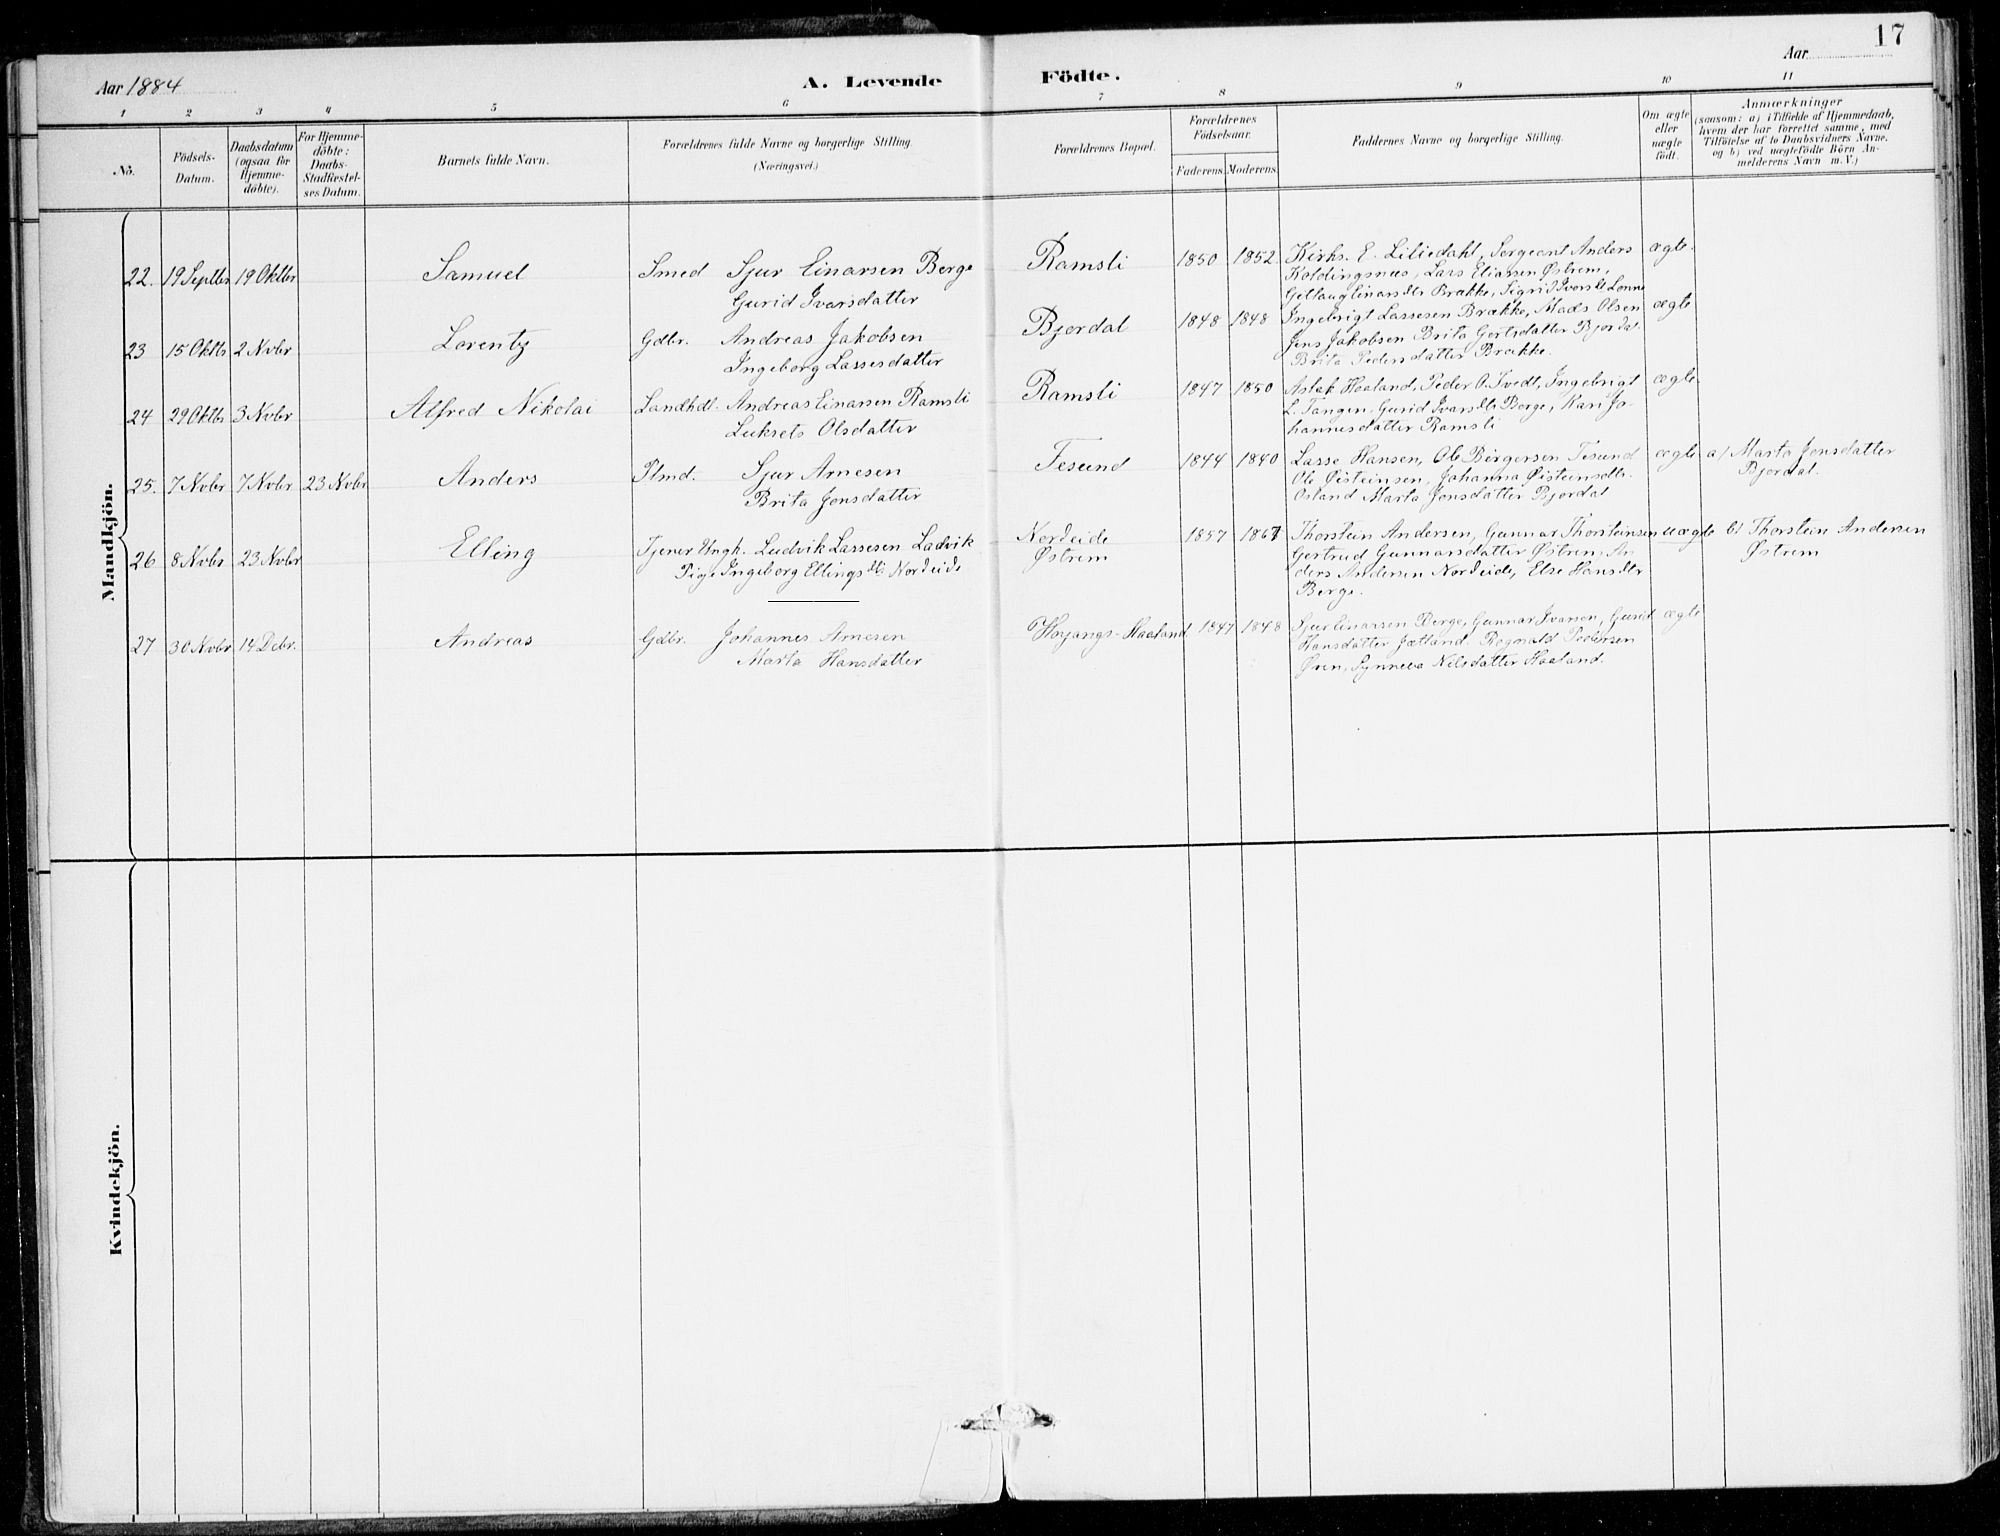 17
Aar 1884
A. Levende Födte.
Aar
1 2 3 4 5 6 7 8 9 10 11
No.
Födsels-
Datum.
Daabsdatum
(ogsaa for
Hjemme-
döbte).
For Hjemme-
döbte:
Daabs-
Stadfæstel-
ses Datum.
Barnets fulde Navn.
Forældrenes fulde Navne og borgerlige Stilling.
(Næringsvei.)
Forældrenes Bopæl.
Forældrenes
Födselsaar.
Faderens. Moderens.
Faddernes Navne og borgerlige Stilling.
Om ægte
eller
uægte
födt.
Anmærkninger
(saasom: a) i Tilfælde af Hjemmedaab,
hvem der har forrettet samme, med
Tilföielse af to Daabsvidners Navne.
og b) ved uægtefödte Börn An-
melderens Navn m. V.)
Mandkjön.
22. 19 Septbr 19 Oktbr Samuel Smed Sjur Einarsen Berge
Gurid Ivarsdatter
Ramsli 1850 1852 Kirks. E. Liliedahl, Sergeant Anders
Koldingsnes, Lars Eliassen Østrem,
Gjetlaug Einarsdtr Brække, Sigrid Ivarsdt Lonne
ægte.
23 15 Oktb 2 Nvbr Lorentz Gdbr. Andreas Jakobsen
Ingeborg Lassesdatter
Bjordal 1848 1848 Ingebrigt Lassesen Brække, Mads Olsen
Jens Jakobsen Brita Gertsdatter Bjordal
Brita Pedersdatter Brække.
ægte
24 29 Oktb 3 Nvbr Alfred Nikolai Landhdl. Andreas Einarsen Ramsli
Lukrets Olsdatter
Ramsli 1847 1850 Aslak Haaland, Peder O. Tvedt, Ingebrigt
L. Tangen Gurid Ivarsdtr Berge, Kari Jo-
hannesdatter Ramsli
ægte.
25. 7 Nvbr 7 Nvbr 23 Nvbr Anders Plmd. Sjur Arnesen
Brita Jonsdatter
Tesund 1844 1840 Lasse Hansen, Ole Birgersen Tesund
Ole Øisteinsen, Johanna Øisteinsdtr.
Osland Marta Jonsdatter Bjordal
ægte a/ Marta Jonsdatter
Bjordal.
26 8 Nvbr 23 Nvbr Elling Tjener Ungk. Ludvik Lassesen Ladvik
Pige Ingeborg Ellingsdtr Nordeide
Nordeide
Østrem
1857 1867 Thorstein Andersen, Gunnar Thorsteinsen
Gertrud Gunnarsdatter Østrem, An
ders Andersen Nordeide, Else Hansdtr
Berge.
uægte b/ Thorstein Andersen
Østrem
27 30 Nvbr 14 Debr. Andreas Gdbr. Johannes Arnesen
Marta Hansdatter
Høyangs-Haaland 1847 1848 Sjur Einarsen Berge, Gunnar Ivarsen, Gurid
Hansdatter Jætland Rognald Pedersen
Øren, Synneva Nilsdatter Haaland.
ægte
Kvindekjön.